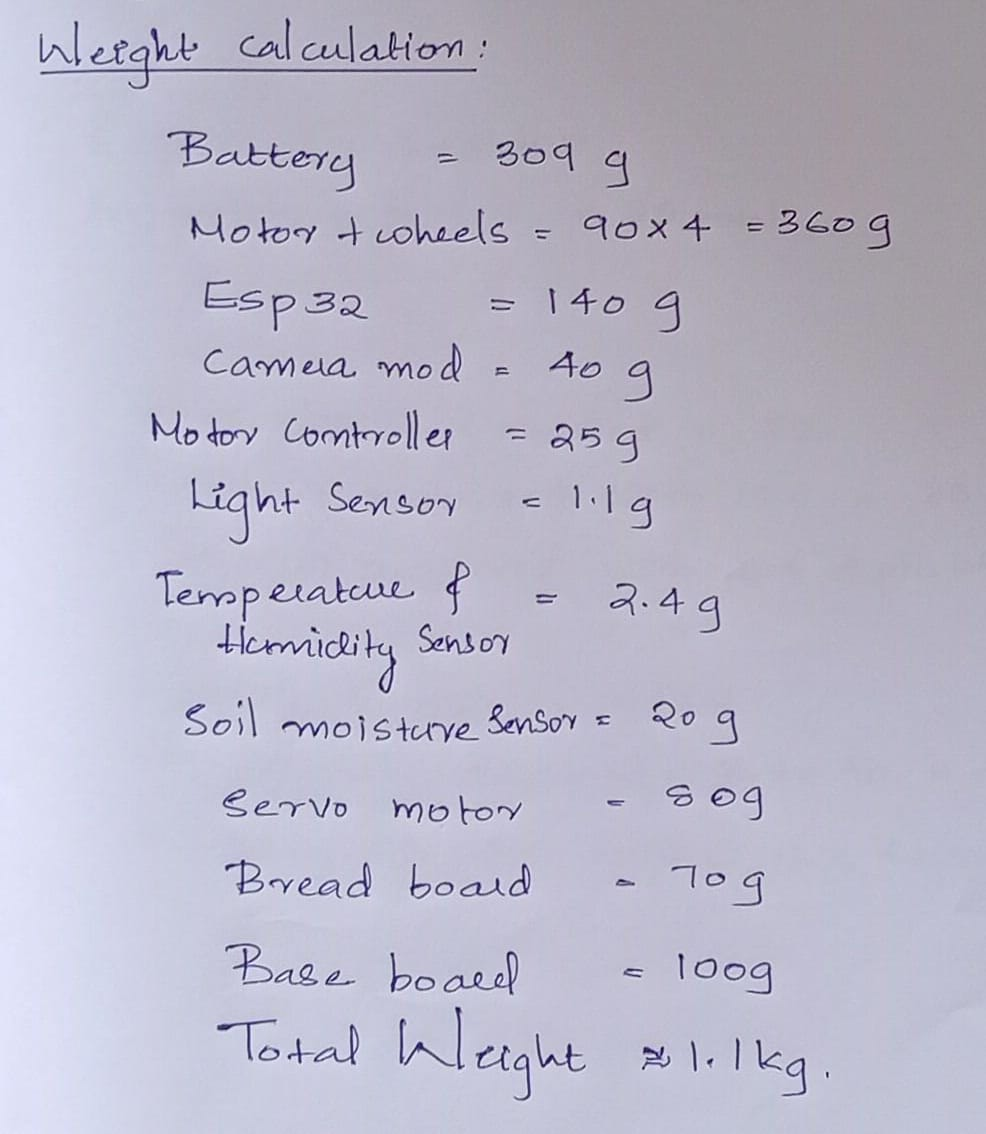 Weight calculation:
Battery = 309 g
Motor + wheels = 90x4 = 360 g
Esp 32 = 140 g
Camera mod = 40 g
Motor Controller = 25 g
Light Sensor = 1.1 g
Temperature & = 2.4 g
Humidity Sensor
Soil moisture Sensor = 20 g
Servo motor = 80g
Bread board = 70g
Base board = 100g
Total Weight ≈ 1.1kg.